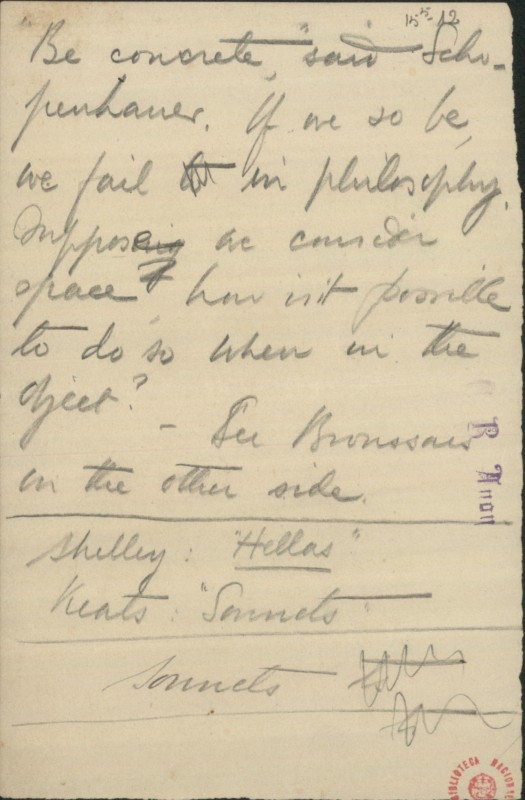 15⁵-12
"Be concrete," said Scho-
penhauer. If we so be,
we fail in philosophy.
Suppose we consider
space, how is it possible
to do so when in the
object?
- See Broussais
on the other side.
Shelley: "Hellas"
Keats: "Sonnets"
Sonnets
R Anon
BIBLIOTECA NACIONAL